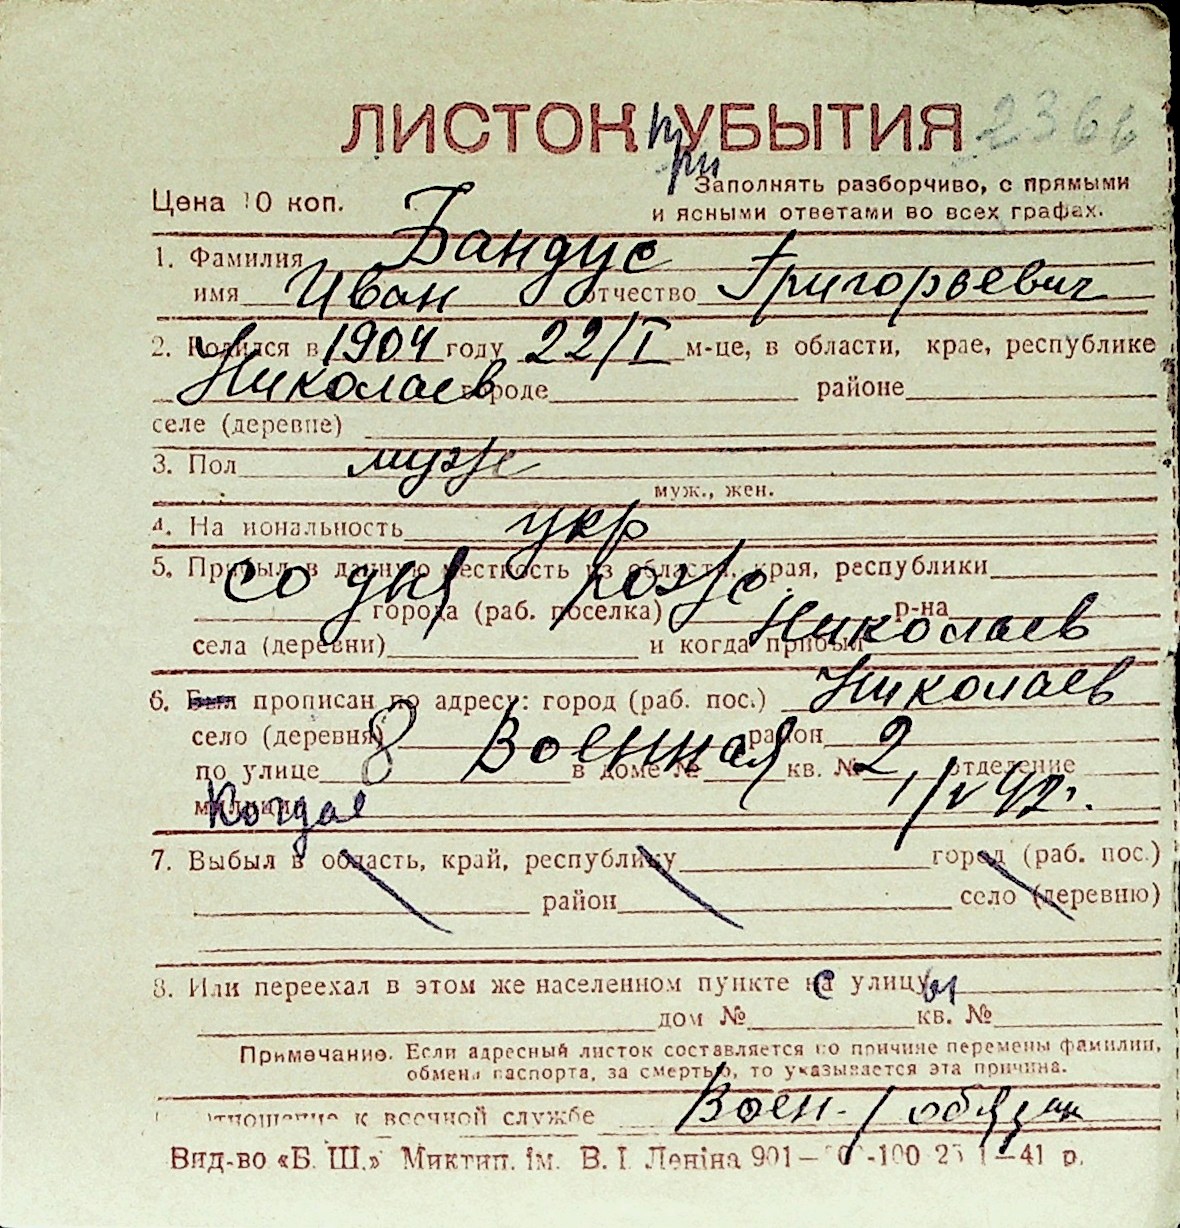 ЛИСТОК при УБЫТИЯ 2366
Цена 10 коп.
Заполнять разборчиво, с прямыми
и ясными ответами во всех графах.
1. Фамилия Бандус
имя Иван отчество Григорьевич
2. Родился в 1904 году 22/I м-це, в области, крае, республике
Николаев городе районе
селе (деревне)
3. Пол муж
муж., жен.
4. Национальность укр
5. Прибыл в данную местность из области, края, республики
со дня рожд.
города (раб. поселка) р-на
села (деревни) и когда прибыл Николаев
6. Был прописан по адресу: город (раб. пос.) Николаев
село (деревня) район
по улице 8 Военная в доме № кв. № 2 отделение
милиции Когда 1/V 42 г.
7. Выбыл в область, край, республику город (раб. пос.)
район село (деревню)
8. Или переехал в этом же населенном пункте с улицы
дом № кв. №
Примечание. Если адресный листок составляется по причине перемены фамилии,
обмена паспорта, за смертью, то указывается эта причина.
отношение к военной службе Воен-обязан
Вид-во «Б. Ш.» Миктип. ім. В. І. Леніна 901— –41 р.